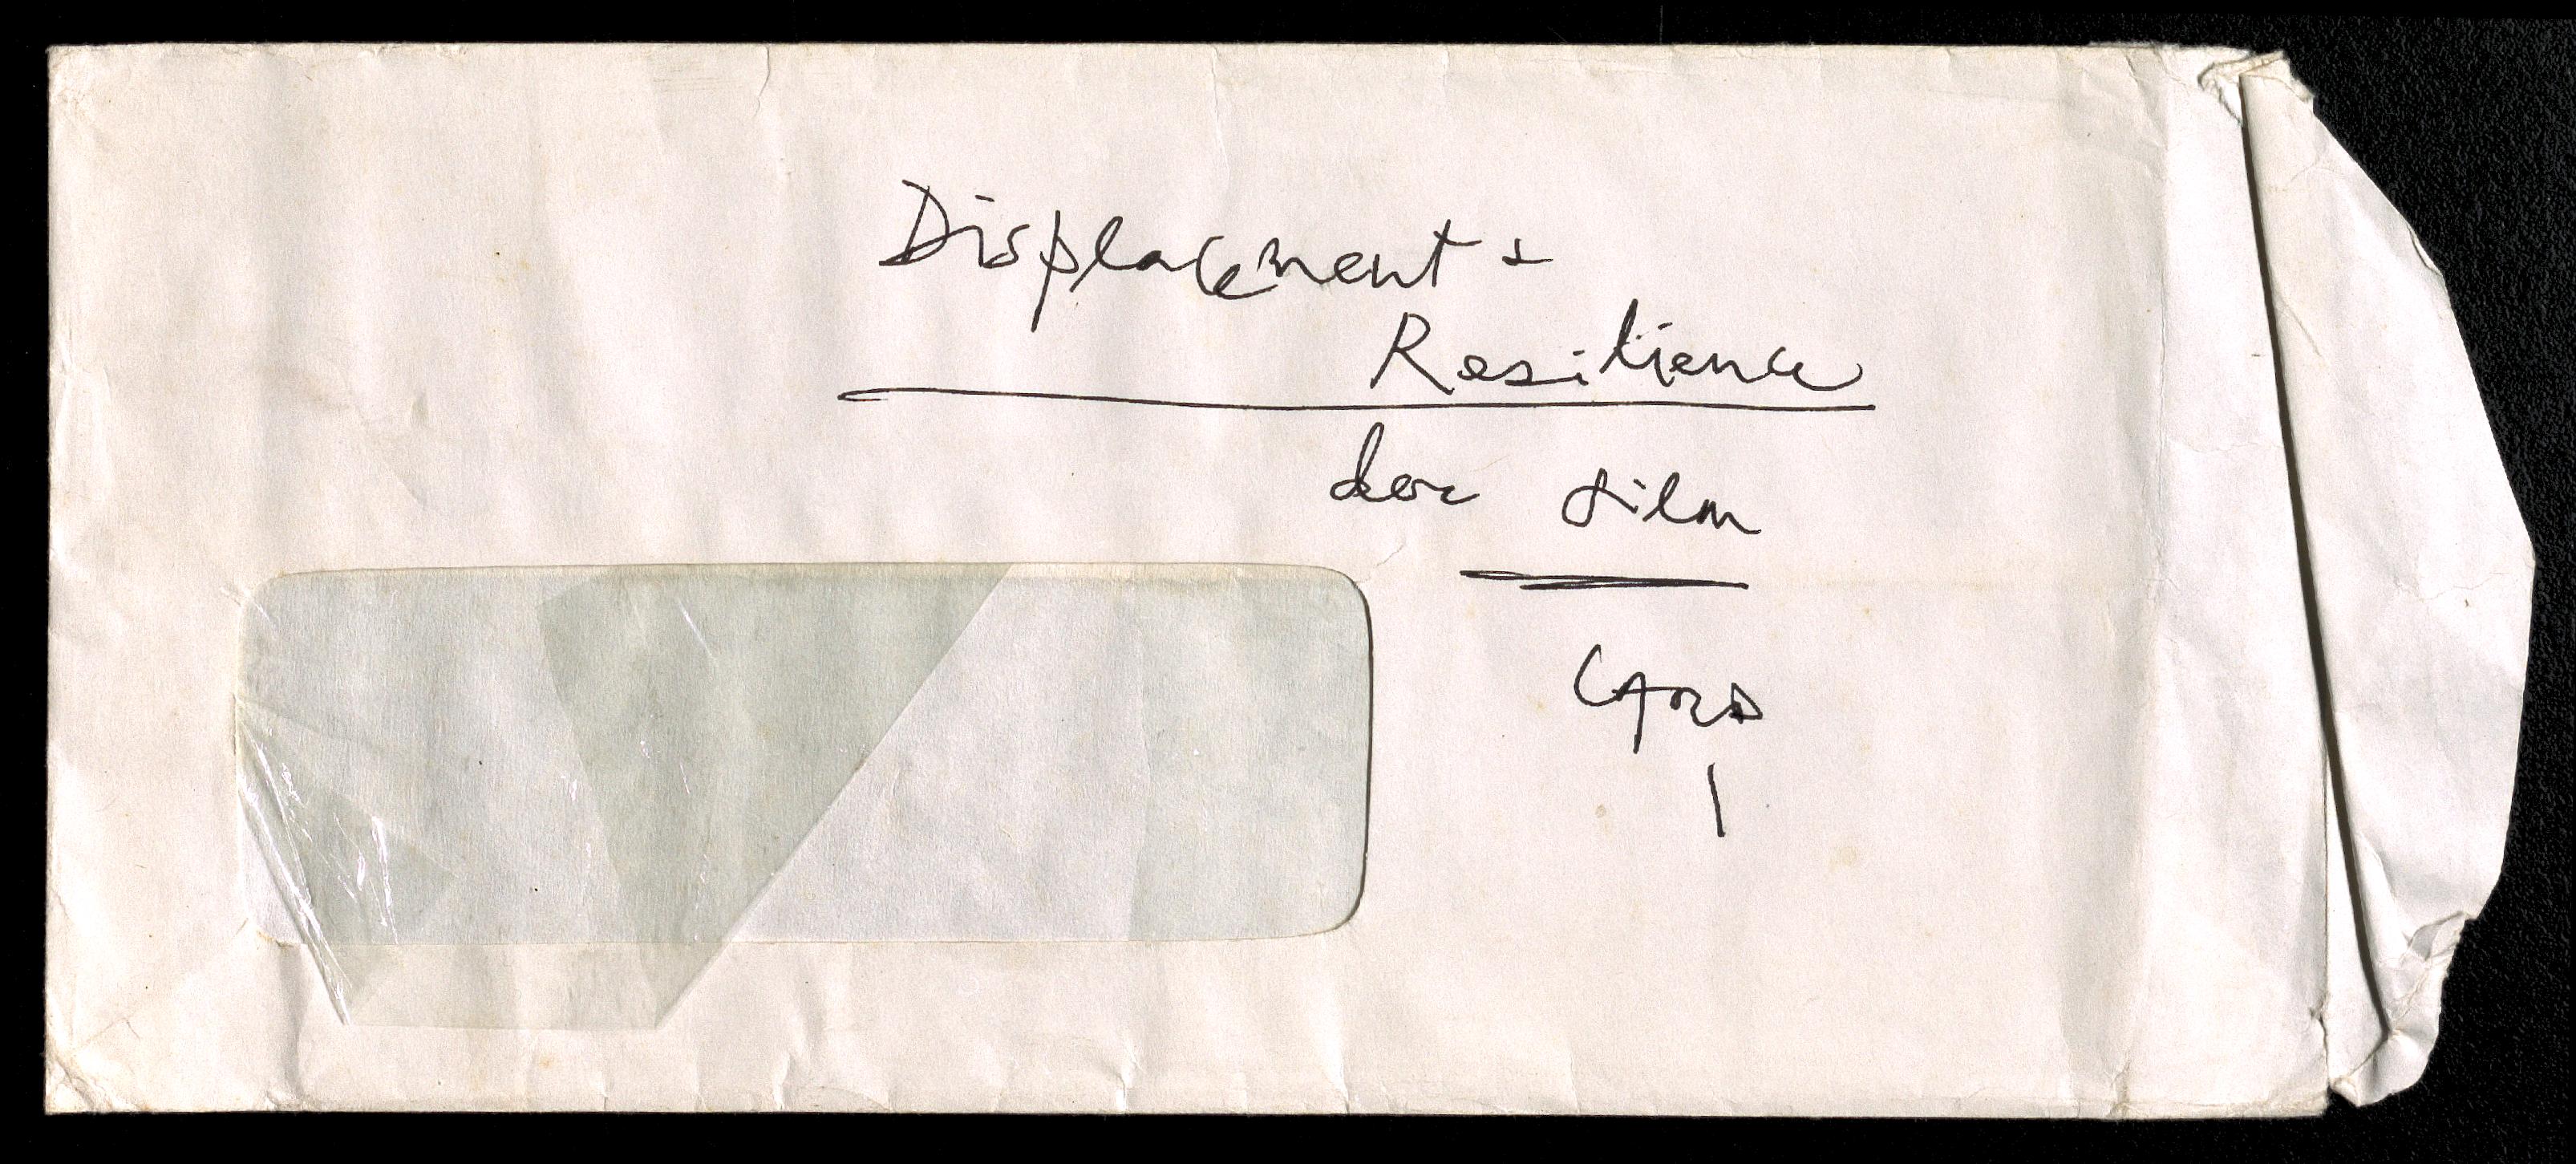 Displacement &
Resilience
doc film
CARD
1